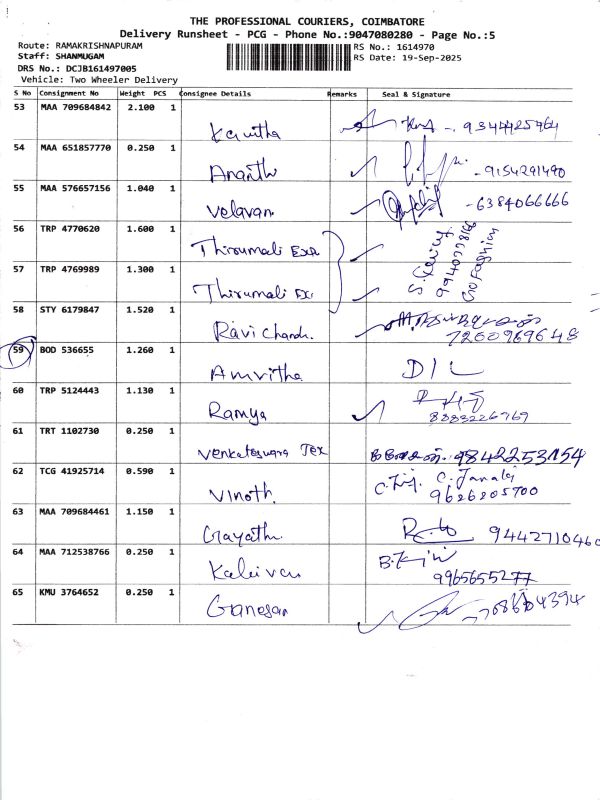 THE PROFESSIONAL COURIERS, COIMBATORE
Delivery Runsheet - PCG - Phone No.:9047080280 - Page No.:5
Route: RAMAKRISHNAPURAM RS No.: 1614970
Staff: SHANMUGAM RS Date: 19-Sep-2025
DRS No.: DCJB161497005
Vehicle: Two Wheeler Delivery
S No Consignment No Weight PCS Consignee Details Remarks Seal & Signature
53 MAA 709684842 2.100 1
Kavitha 9344425464
54 MAA 651857770 0.250 1
Ananthi - 9154291490
55 MAA 576657156 1.040 1
Velavan - 6384066666
56 TRP 4770620 1.600 1
Thirumali
57 TRP 4769989 1.300 1
Thirumali
58 STY 6179847 1.520 1
Ravi Chandr. 7260969648
59 BOD 536655 1.260 1
Amritha D/L
60 TRP 5124443 1.130 1
Ramya 8883226769
61 TRT 1102730 0.250 1
Venkateswara Tex 9842253154
62 TCG 41925714 0.590 1
C. Janaki
Vinoth 9626205700
63 MAA 709684461 1.150 1
Gayathri 9442710460
64 MAA 712538766 0.250 1
Kalaivan 9965655277
65 KMU 3764652 0.250 1
Ganesan